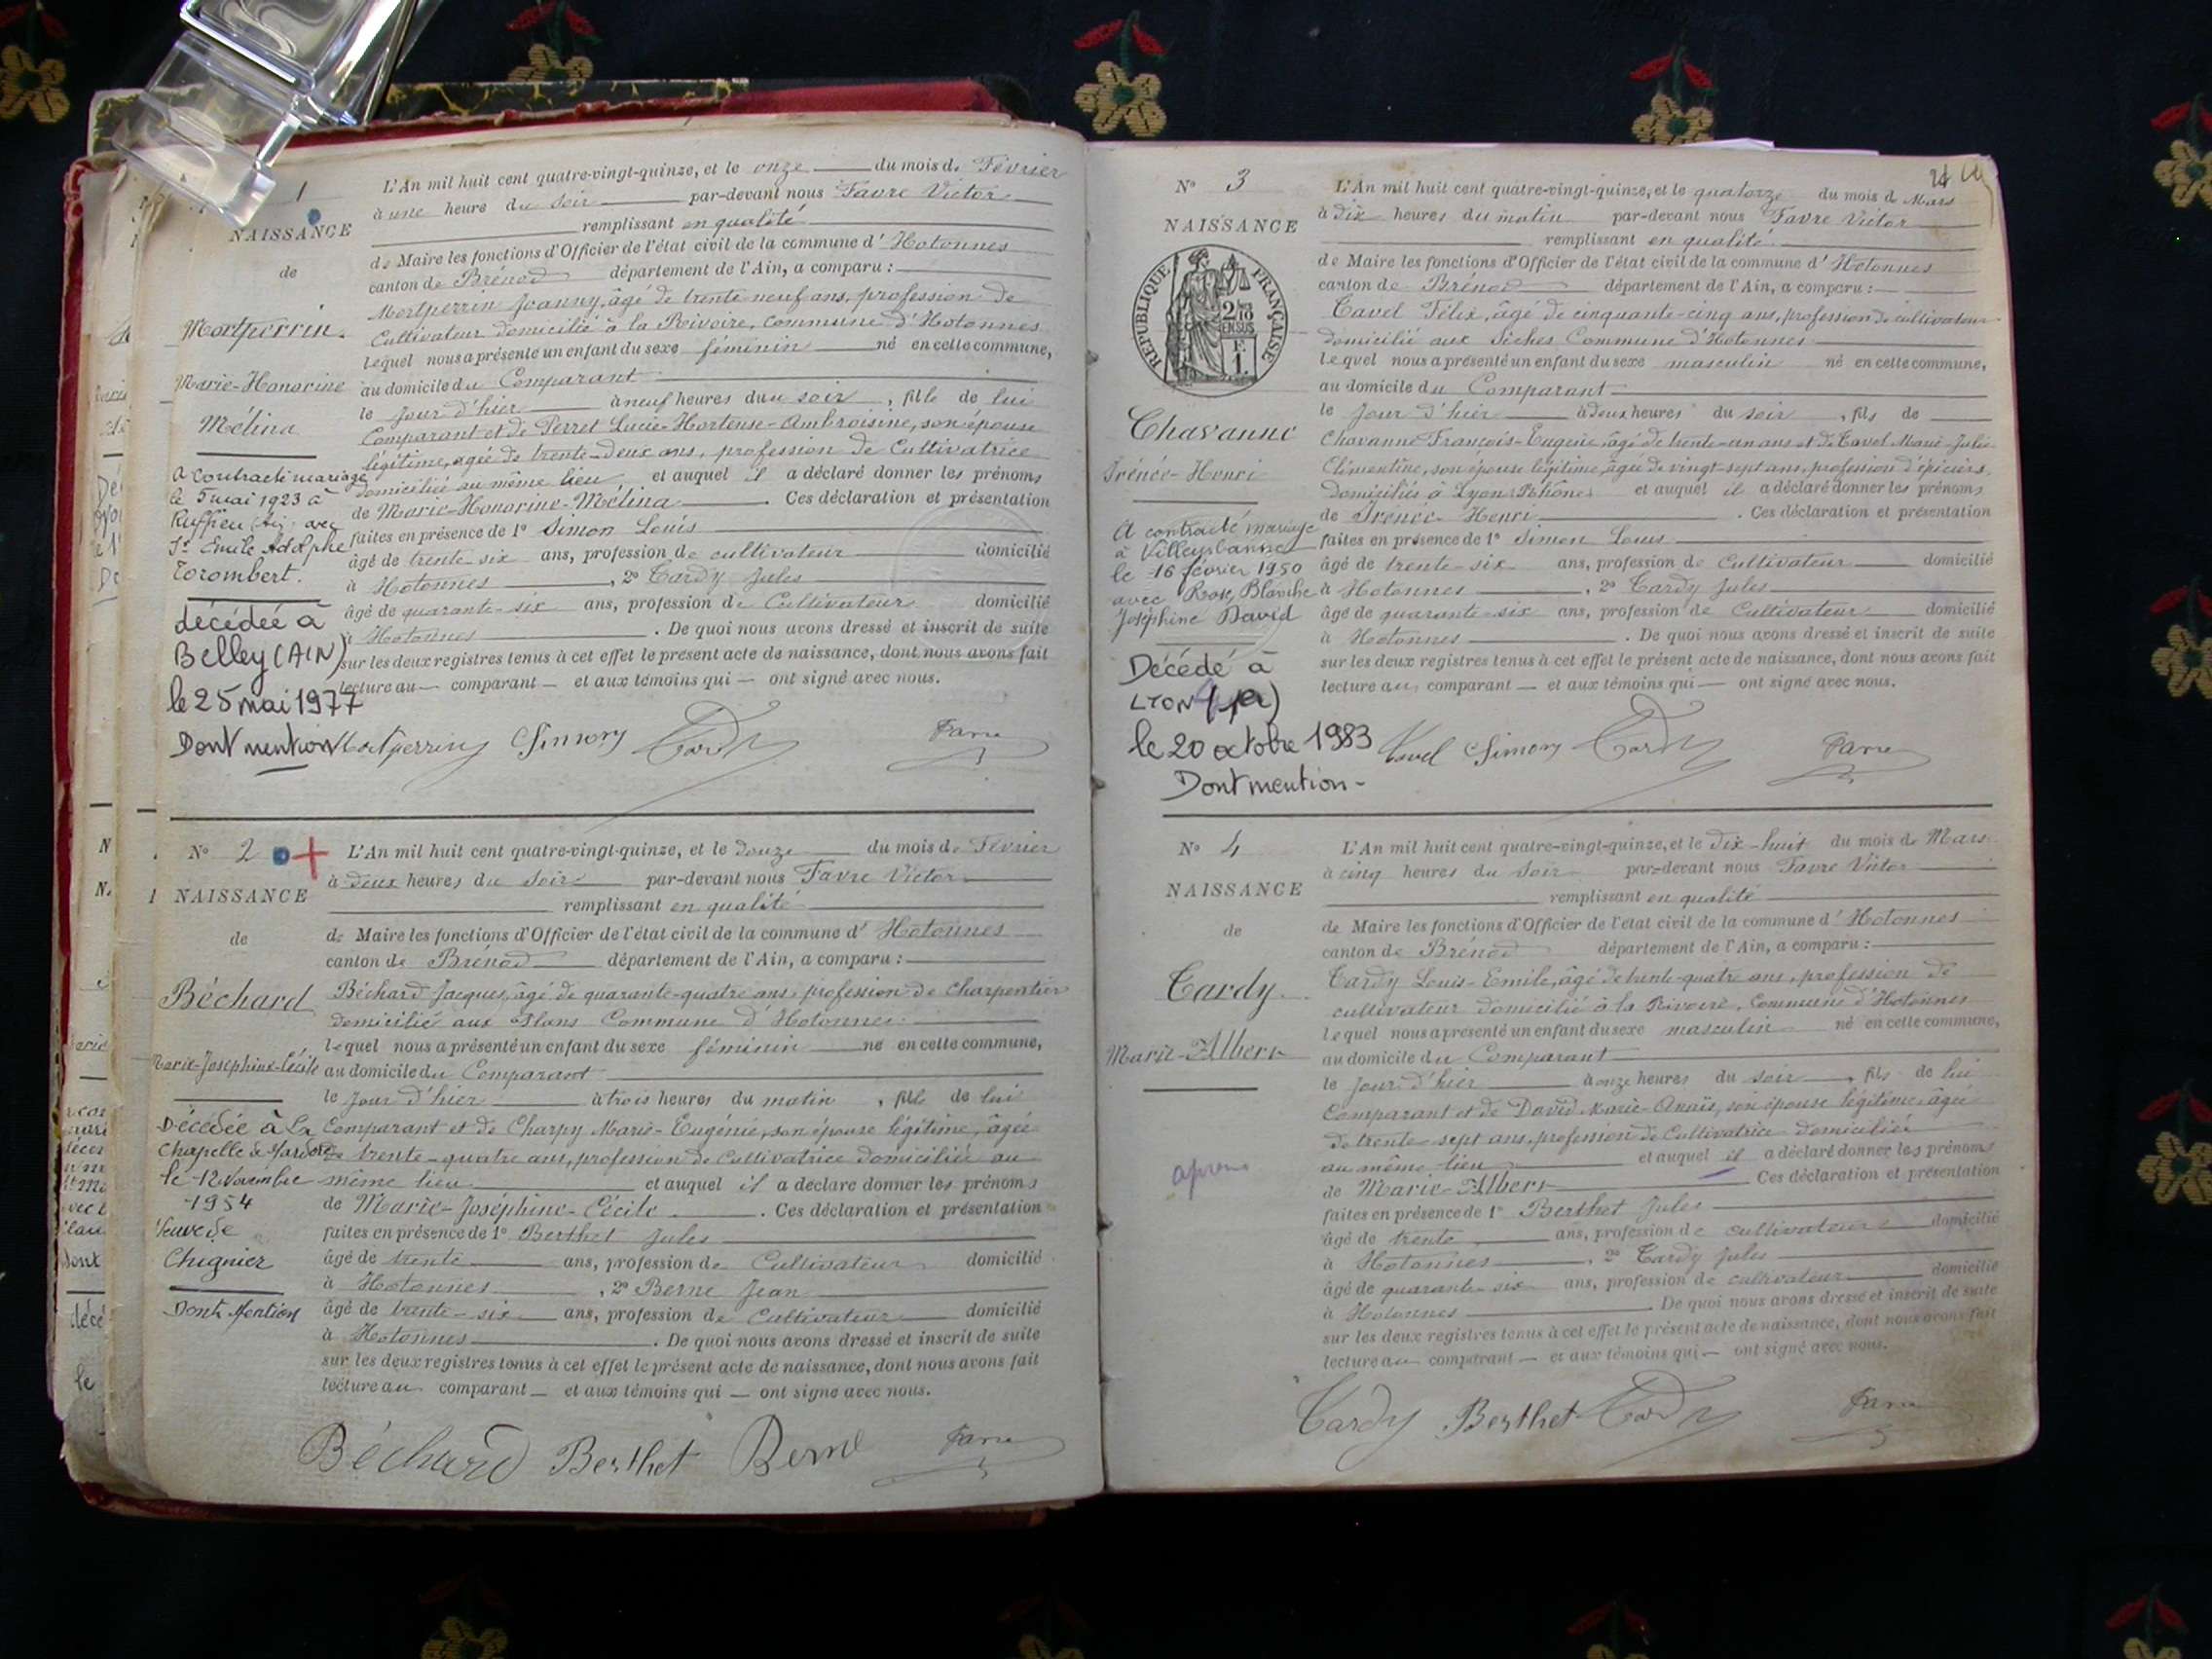 1
NAISSANCE
de
Montperrin.
Marie-Honorine
Mélina
A contracté mariage
le 5 mai 1923 à
Ruffieu (Ain) avec
Sr Emile Adolphe
Torombert.
décédée à
Belley (AIN)
le 25 mai 1977
Dont mention
L'An mil huit cent quatre-vingt-quinze, et le onze du mois de Février
à une heure du soir par-devant nous Favre Victor
remplissant en qualité
de Maire les fonctions d'Officier de l'état civil de la commune d'Hotonnes
canton de Brénod département de l'Ain, a comparu :
Montperrin Joanny, âgé de trente neuf ans, profession de
Cultivateur domicilié à la Rivoire, commune d'Hotonnes
lequel nous a présenté un enfant du sexe féminin né en cette commune,
au domicile du Comparant
le jour d'hier à neuf heures du soir, fille de lui
Comparant et de Perret Lucie-Hortense-Ambroisine, son épouse
légitime, agée de trente-deux ans, profession de Cultivatrice
domiciliée au même lieu et auquel il a déclaré donner les prénoms
de Marie-Honorine-Mélina. Ces déclaration et présentation
faites en présence de 1° Simon Louis
âgé de trente-six ans, profession de cultivateur domicilié
à Hotonnes, 2° Tardy Jules
âgé de quarante-six ans, profession de Cultivateur domicilié
à Hotonnes. De quoi nous avons dressé et inscrit de suite
sur les deux registres tenus à cet effet le présent acte de naissance, dont nous avons fait
lecture au comparant et aux témoins qui ont signé avec nous.
Montperrin Simon Tardy Favre
N° 2
1 NAISSANCE
de
Béchard
Marie-Joséphine-Cécile
Décédée à La
Chapelle de Mardore
le 12 Novembre
1954
Veuve de
Chignier
Dont Mention
L'An mil huit cent quatre-vingt-quinze, et le douze du mois de Février
à deux heures du soir par-devant nous Favre Victor
remplissant en qualité
de Maire les fonctions d'Officier de l'état civil de la commune d'Hotonnes
canton de Brénod département de l'Ain, a comparu :
Béchard Jacques, âgé de quarante-quatre ans, profession de Charpentier
domicilié aux Plans Commune d'Hotonnes
lequel nous a présenté un enfant du sexe féminin né en cette commune,
au domicile du Comparant
le jour d'hier à trois heures du matin, fille de lui
Comparant et de Charpy Marie-Eugénie, son épouse légitime, âgée
de trente-quatre ans, profession de Cultivatrice domiciliée au
même lieu et auquel il a déclaré donner les prénoms
de Marie-Joséphine-Cécile. Ces déclaration et présentation
faites en présence de 1° Berthet Jules
âgé de trente ans, profession de Cultivateur domicilié
à Hotonnes, 2° Berne Jean
âgé de trente-six ans, profession de Cultivateur domicilié
à Hotonnes. De quoi nous avons dressé et inscrit de suite
sur les deux registres tenus à cet effet le présent acte de naissance, dont nous avons fait
lecture au comparant et aux témoins qui ont signé avec nous.
Béchard Berthet Berne Favre
N° 3
NAISSANCE
RÉPUBLIQUE FRANÇAISE
2/10 EN SUS
F. 1.
Chavanne
Irénée-Henri
A contracté mariage
à Villeurbanne
le 16 février 1950
avec Rose, Blanche
Joséphine David
Décédé à
LYON
le 20 octobre 1983
Dont mention -
L'An mil huit cent quatre-vingt-quinze, et le quatorze du mois de Mars
à Dix heures du matin par-devant nous Favre Victor
remplissant en qualité
de Maire les fonctions d'Officier de l'état civil de la commune d'Hotonnes
canton de Brénod département de l'Ain, a comparu :
Tavel Félix, âgé de cinquante-cinq ans, profession de cultivateur
domicilié aux Sèches Commune d'Hotonnes
lequel nous a présenté un enfant du sexe masculin né en cette commune,
au domicile du Comparant
le jour d'hier à deux heures du soir, fils de
Chavanne François-Eugène, âgé de trente-un ans et de Tavel Marie-Julie
Clémentine, son épouse légitime, âgée de vingt-sept ans, profession d'épiciers,
domiciliés à Lyon (Rhône) et auquel il a déclaré donner les prénoms
de Irénée-Henri. Ces déclaration et présentation
faites en présence de 1° Simon Louis
âgé de trente-six ans, profession de Cultivateur domicilié
à Hotonnes, 2° Tardy Jules
âgé de quarante-six ans, profession de Cultivateur domicilié
à Hotonnes. De quoi nous avons dressé et inscrit de suite
sur les deux registres tenus à cet effet le présent acte de naissance, dont nous avons fait
lecture au comparant et aux témoins qui ont signé avec nous.
Tavel Simon Tardy Favre
N° 4
NAISSANCE
de
Tardy
Marie-Albert
L'An mil huit cent quatre-vingt-quinze, et le dix-huit du mois de Mars
à cinq heures du soir par-devant nous Favre Victor
remplissant en qualité
de Maire les fonctions d'Officier de l'état civil de la commune d'Hotonnes
canton de Brénod département de l'Ain, a comparu :
Tardy Louis-Emile, âgé de trente-quatre ans, profession de
cultivateur domicilié à la Rivoire, Commune d'Hotonnes
lequel nous a présenté un enfant du sexe masculin né en cette commune,
au domicile du Comparant
le jour d'hier à onze heures du soir, fils de lui
Comparant et de David Marie-Anaïs, son épouse légitime, âgée
de trente-sept ans, profession de Cultivatrice domiciliée
au même lieu et auquel il a déclaré donner les prénoms
de Marie-Albert Ces déclaration et présentation
faites en présence de 1° Berthet Jules
âgé de trente ans, profession de cultivateur domicilié
à Hotonnes, 2° Tardy Jules
âgé de quarante-six ans, profession de cultivateur domicilié
à Hotonnes. De quoi nous avons dressé et inscrit de suite
sur les deux registres tenus à cet effet le présent acte de naissance, dont nous avons fait
lecture au comparant et aux témoins qui ont signé avec nous.
Tardy Berthet Tardy Favre